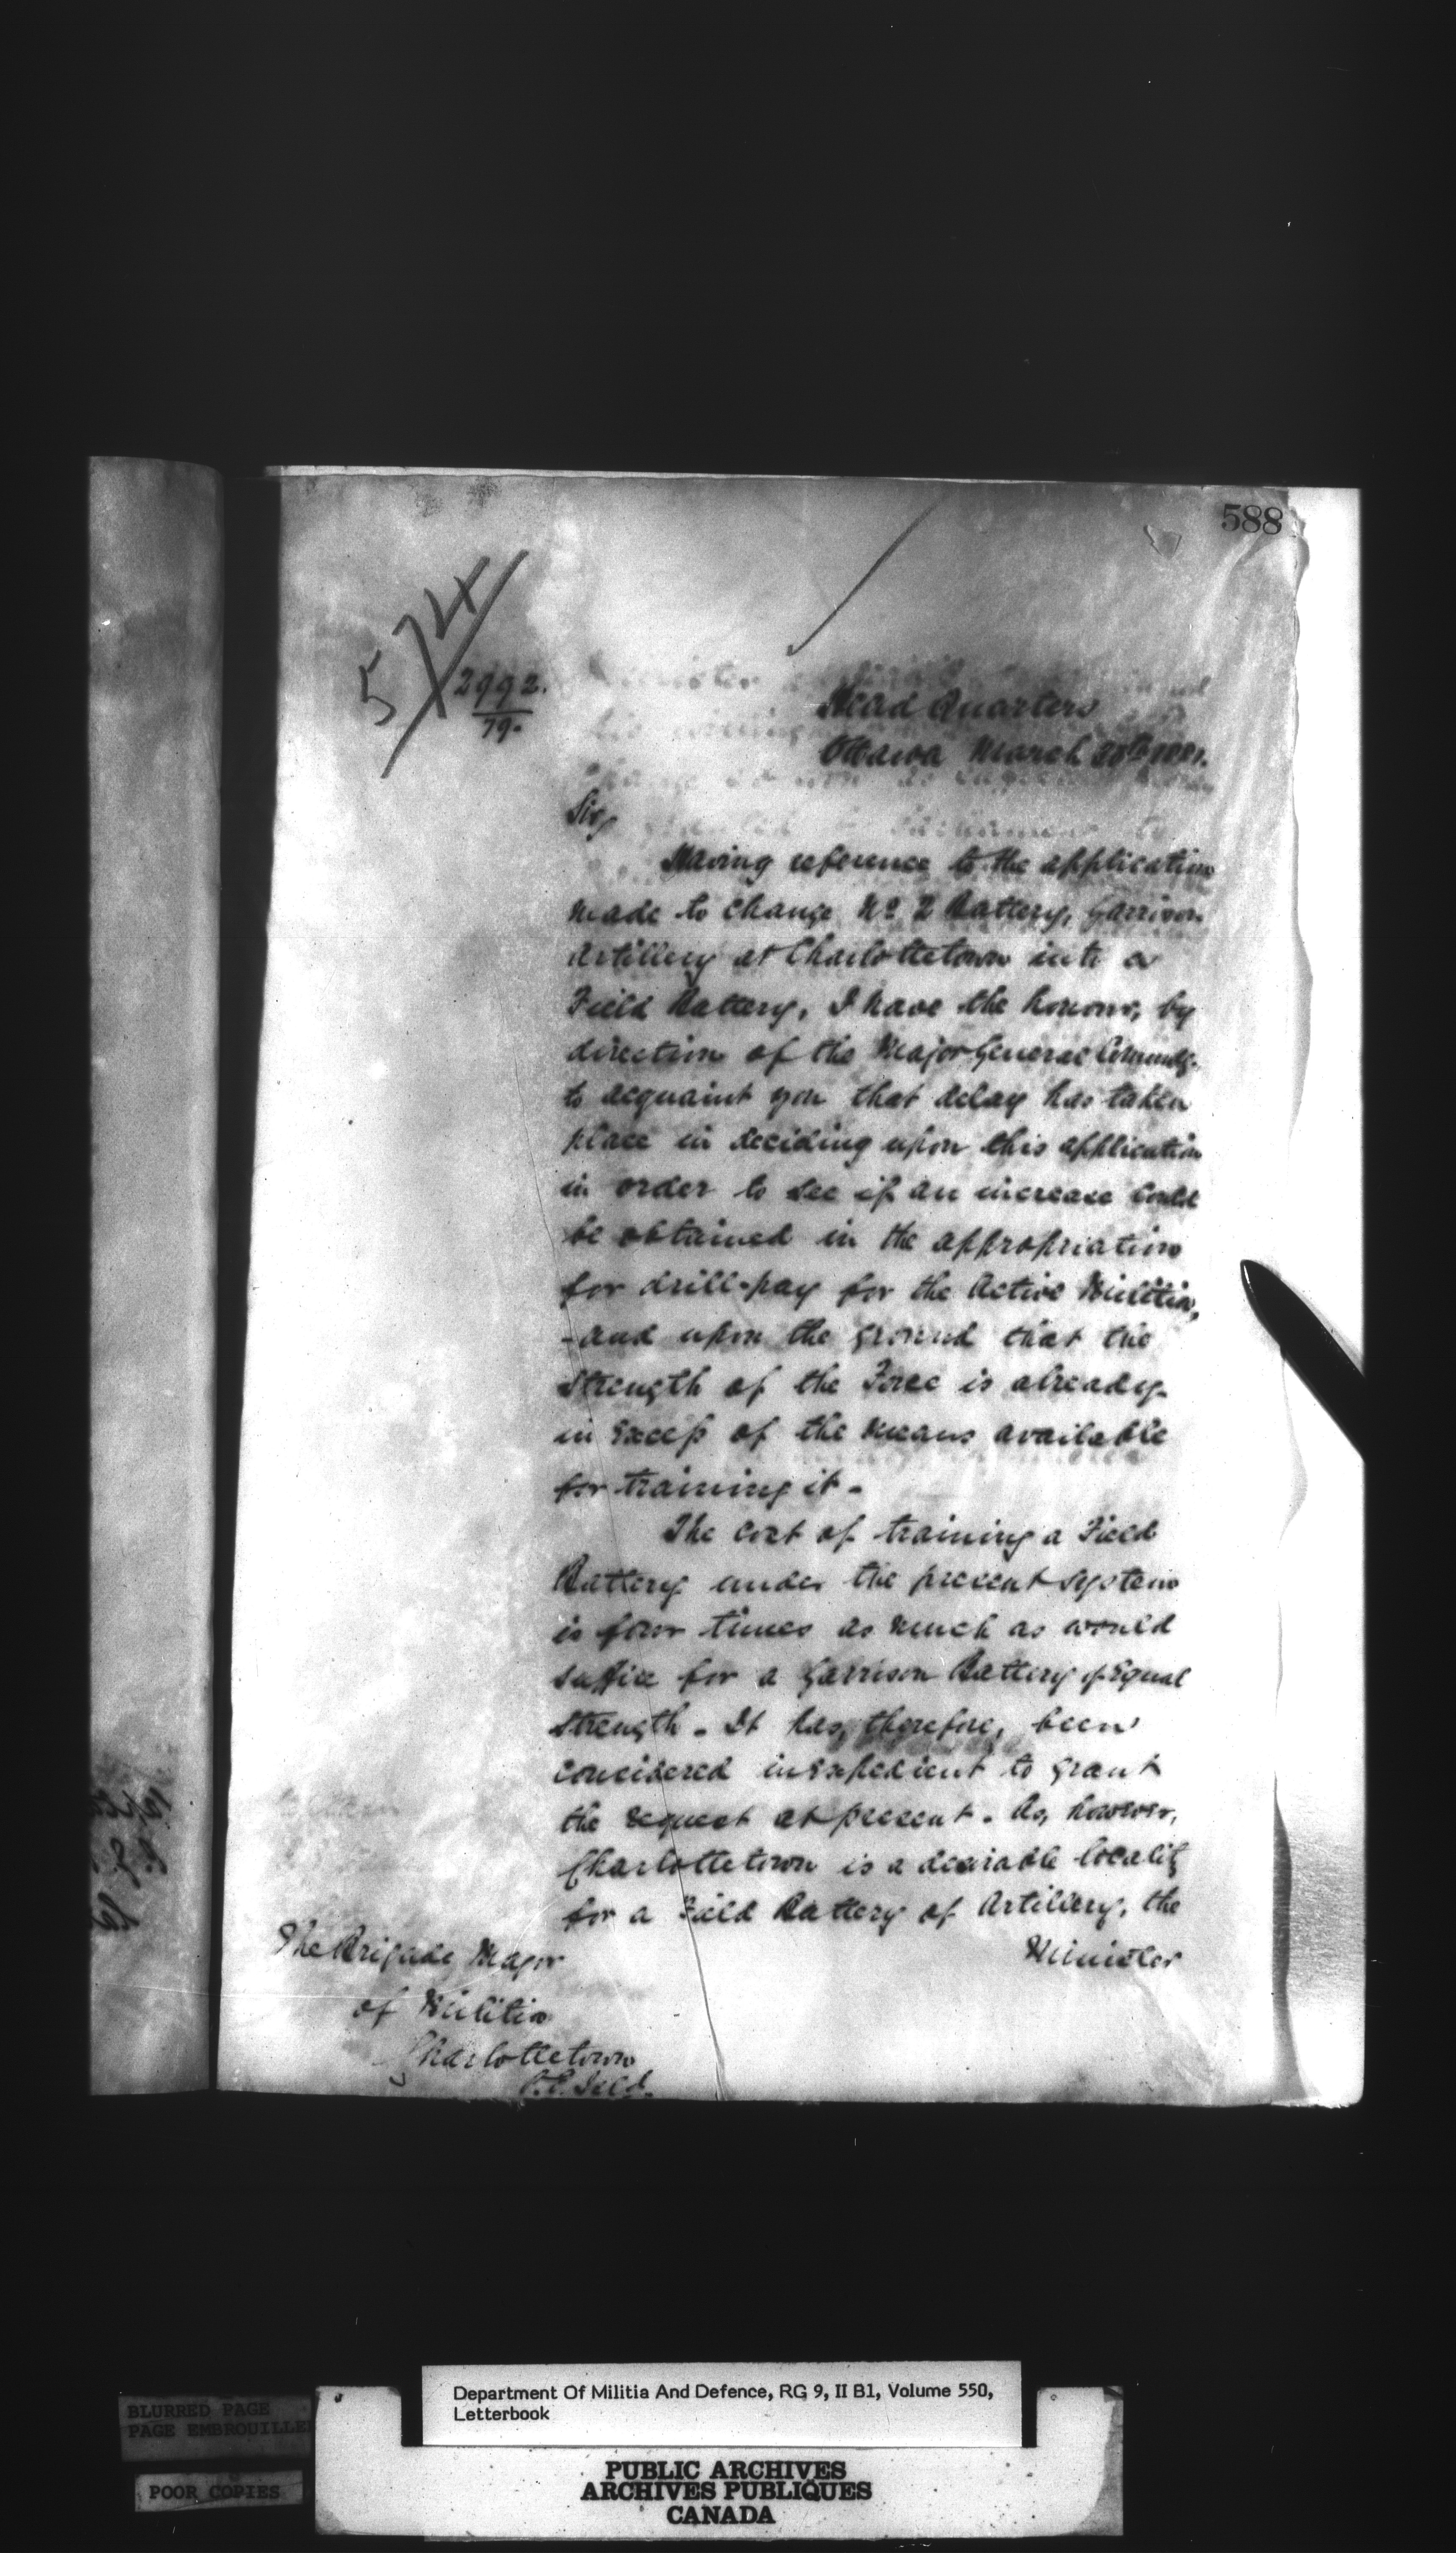 588
574
2992.
79.
Head Quarters
Ottawa March 30th 1881.
Sir,
Having reference to the application
made to change No. 2 Battery, Garrison
Artillery at Charlottetown into a
Field Battery, I have the honour, by
direction of the Major General Commdg.
to acquaint you that delay has taken
place in deciding upon this application
in order to see if an increase could
be obtained in the appropriation
for drill-pay for the Active Militia,
- and upon the ground that the
strength of the Force is already
in excess of the means available
for training it -
The cost of training a Field
Battery under the present system
is four times as much as would
suffice for a Garrison Battery of equal
strength - It has, therefore, been
considered inexpedient to grant
the request at present. As, however,
Charlottetown is a desirable locality
for a Field Battery of Artillery, the
Minister
The Brigade Major
of Militia
Charlottetown
P.E. Isld.
BLURRED PAGE
PAGE EMBROUILLEE
POOR COPIES
Department Of Militia And Defence, RG 9, II B1, Volume 550,
Letterbook
PUBLIC ARCHIVES
ARCHIVES PUBLIQUES
CANADA